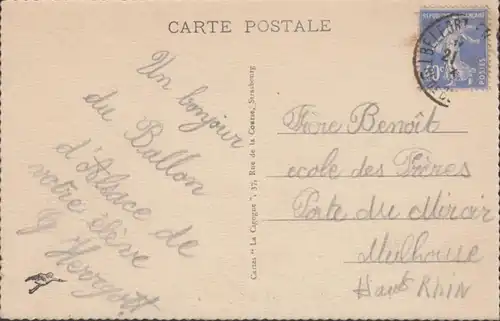 CARTE POSTALE
RÉPUBLIQUE FRANÇAISE
BELFORT
21
Un bonjour
du Ballon
d'Alsace de
votre élève
G Herrgott
Cartes "La Cigogne", 37, Rue de la Course, Strasbourg
Frère Benoît
ecole des Frères
Porte du Miroir
Mulhouse
Haut RHIN